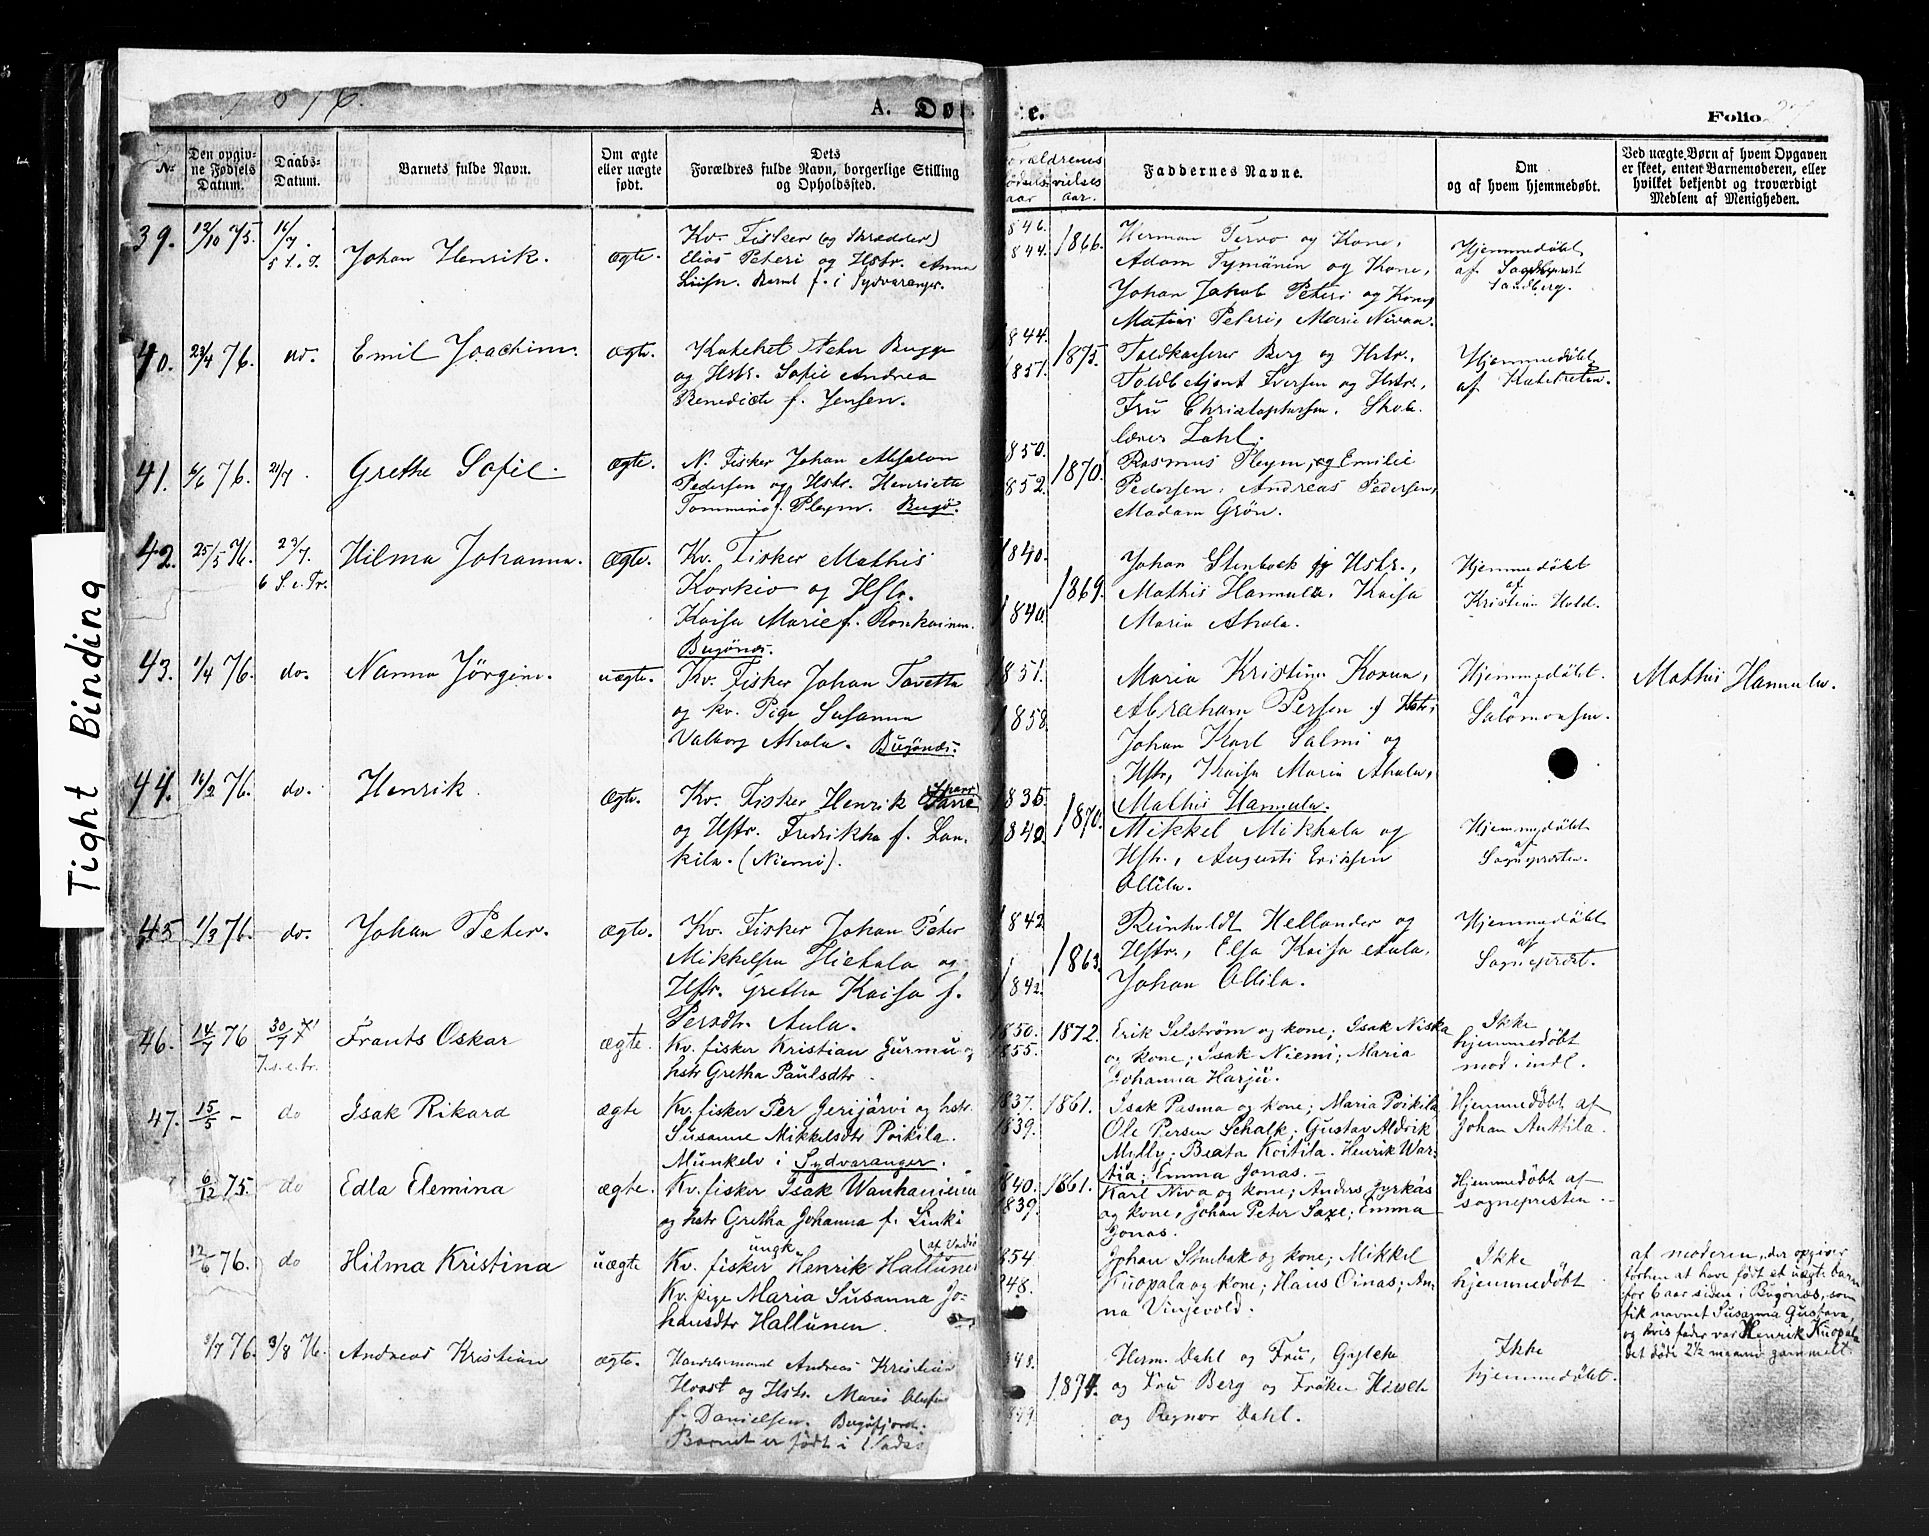 1876.
A. Døbte.
Folio
Nr.
Den opgivne Fødsels Datum.
Daabs-Datum.
Barnets fulde Navn.
Om ægte eller uægte født.
Dets Forældres fulde Navn, borgerlige Stilling og Opholdssted.
Forældrenes Fødselsaar
vielsesaar.
Faddernes Navne.
Om og af hvem hjemmedøbt.
Ved uægte Børn af hvem Opgaven er skeet, enten Barnemoderen, eller hvilket bekjendt og troværdigt Medlem af Menigheden.
39. 12/10 75. 16/7.
Johan Henrik. ægte.
Kv. Fisker (og Skrædder)
Elias Peteri og Hstr. Anna
Barnet f. i Sydvaranger.
1846. 1844. 1866.
Herman Tervo og Kone,
Adam Tymänen og Kone,
Johan Jakob Peteri og Kone,
Peteri, Marie
Hjemmedøbt
af
Sandberg.
40. 23/4 76. do. Emil Joachim. ægte.
Kateket Peter Bugge
og Hstr. Sofie Andrea
Benedicte f. Jensen.
1844. 1851. 1875.
Toldkasserer Berg og Hstr.,
Toldbetjent Iversen og Hstr.,
Fru Christophersen. Skole
lærer Zahl.
Hjemmedøbt
af Kateketen.
41. 6/6 76. 21/7. Grethe Sofie. ægte.
N. Fisker Johan Absalon
Pedersen og Hstr. Henriette
f. Pleym. Bugø.
1850. 1852. 1870.
Rasmus Pleym, og Emilie
Pedersen, Andreas Pedersen,
Madam Grön.
42. 25/5 76. 23/7.
6 S. e. Tr.
Hilma Johanna. ægte.
Kv. Fisker Mathis
Korkio og Hstr.
Kaisa Marie f. Ronkainen.
Bugönæs.
1840. 1840. 1869.
Johan Stenback og Hstr.,
Mathis Hannula, Kaisa
Maria Ahola.
Hjemmedøbt
af
Kristian Hold.
43. 1/4 76. do. Nanna Jörgine. uægte.
Kv. Fisker Johan Tavetta
og kv. Pige Susanna
Valborg Ahola. Bugönæs.
1851. 1858.
Maria Kristine Korva,
Abraham Persen og Hstr,
Johan Karl Salmi og
Hstr, Kaisa Maria Ahola,
Mathis Hannula.
Hjemmedøbt.
Salomonsen.
Mathis Hannula.
44. 16/2 76. do. Henrik. ægte.
Kv. Fisker Henrik
og Hstr. Fredrikka f. Lan-
kila. (Niemi).
1835 1840. 1870.
Mikkel Mikkala og
Hstr., Augusti Eriksen
Ollila.
Hjemmedøbt
af
Sognepresten.
45 1/3 76. do. Johan Peter. ægte.
Kv. Fisker Johan Peter
Mikkelsen Hietala og
Hstr. Gretha Kaisa f.
Persdtr. Aula.
1842 1842. 1863.
Reinholdt Hellander og
Hstr., Elsa Kaisa Aula,
Johan Ollila.
Hjemmedøbt
af
Sognepræst.
46. 14/7 76 30/7
7. s. e. tr.
Frants Oskar ægte.
Kv. fisker Kristian Gurmu og
hstr Gretha Paulsdtr.
1850. 1855. 1872.
Erik Selström og kone; Isak Niska
og kone; Isak Niemi; Maria
Johanna Harjü.
Ikke
hjemmedøbt
mod. indl.
47. 15/5 - do Isak Rikard ægte
Kv. fisker Per Jerijärvi og hstr
Susanne Mikkelsdtr Poikila.
Munkelv i Sydvaranger.
1837. 1839. 1861.
Isak Pasma og kone; Maria Poikila
Ole Persen Schalk; Gustav Aldrik
Mylly; Beata Koitila. Henrik War-
tia; Emma Jonas.
Hjemmedøbt af
Johan Anttila.
6/12 75. do Edla Elemina ægte.
Kv. fisker Isak Wanhaniemi
og hstr Gretha Johanna f. Links
1840. 1839. 1861.
Karl Niva og kone; Anders Jyrkäs
og kone, Johan Peter Saxe; Emma
Jonas.
Hjemmedøbt af
sognepresten.
12/6 76. do Hilma Kristina uægte
ungk. af Vadsö
Kv. fisker Henrik Hallunen
Kv. pige Maria Susanna Jo-
hansdtr Hallunen
1854. 1848.
Johan Stenbak og kone; Mikkel
Kuopala og kone; Hans Oinas; An-
na Vinjevold.
Ikke
hjemmedøbt
af moderen, der opgiver
forhen at have født et uægte barn
for 6 aar siden i Bugönæs, som
fik navnet Susanna Gustava,
og hvis fader var Henrik Kuopala
Det døde 2½ maaned gammelt
3/7 76. 3/8 76. Andreas Kristian ægte.
Handelsmand Andreas Kristian
og Hstr. Marie
f. Danielsen. Bugöfjord.
Barnet er født i Vadsö
1848. 1849. 1874.
Herm. Dahl og Fru,
og Fru Berg og Fröken
og Regnor Dahl.
Ikke
hjemmedøbt.
Tight Binding